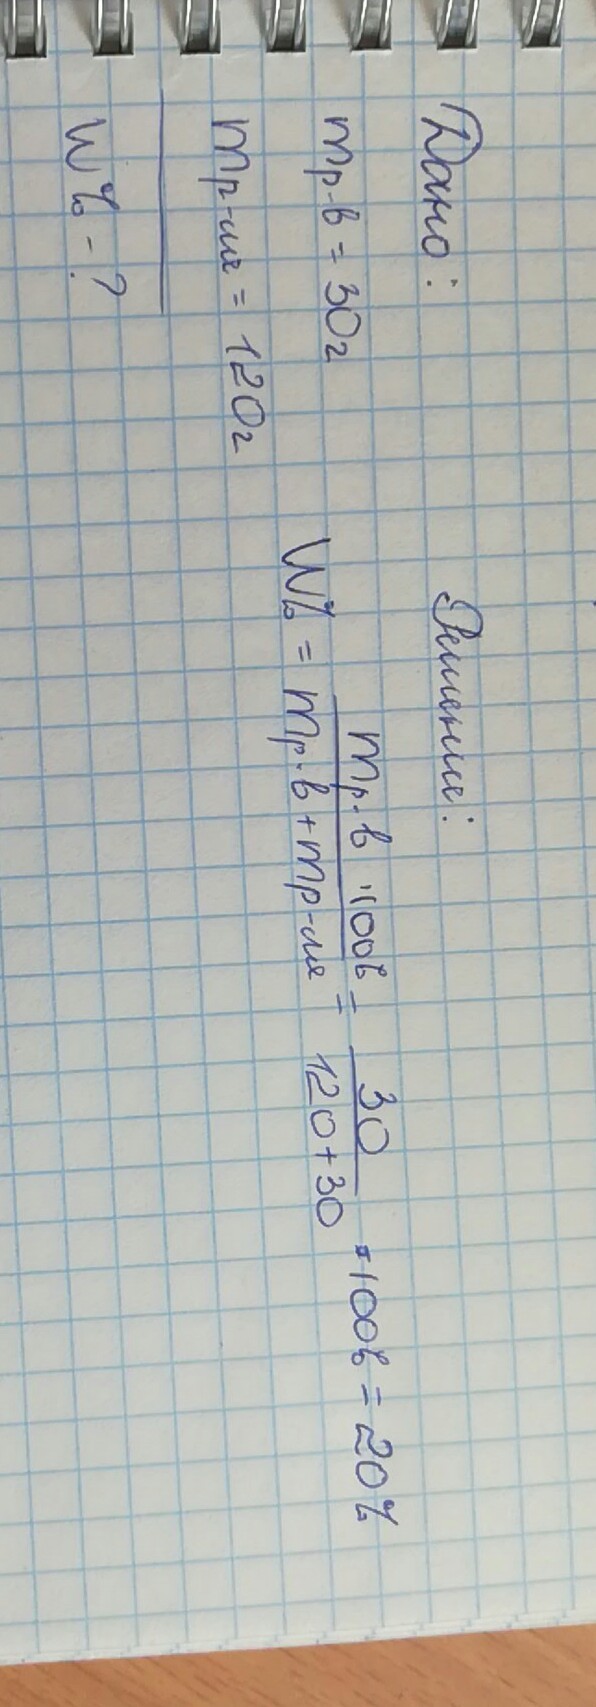 Дано:
mр-в = 30г
mр-ля = 120г
W% - ?
Решение:
W% = mр-в · 100% / mр-в + mр-ля = 30 / 120 + 30 · 100% = 20%